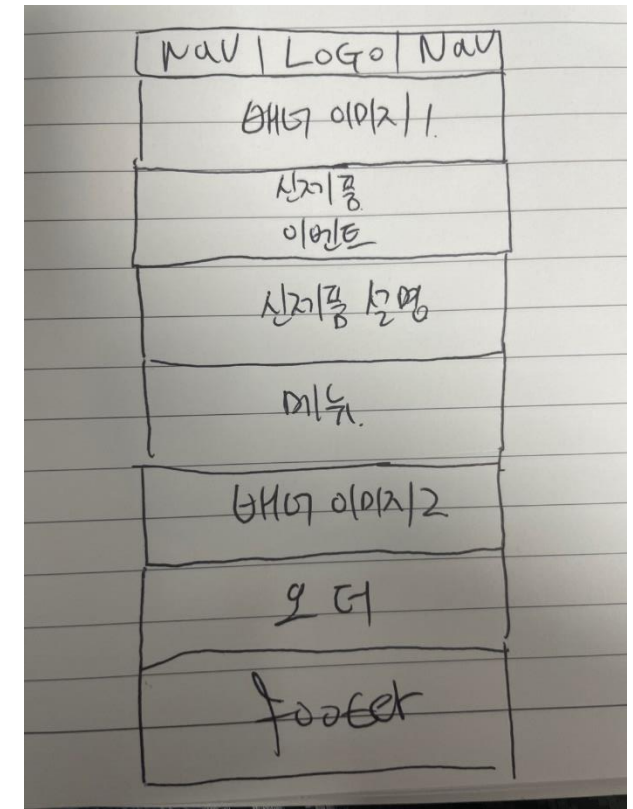 Nav | LOGO | Nav
배너 이미지 1.
신제품
이벤트
신제품 설명
메뉴.
배너 이미지 2
오더
footer